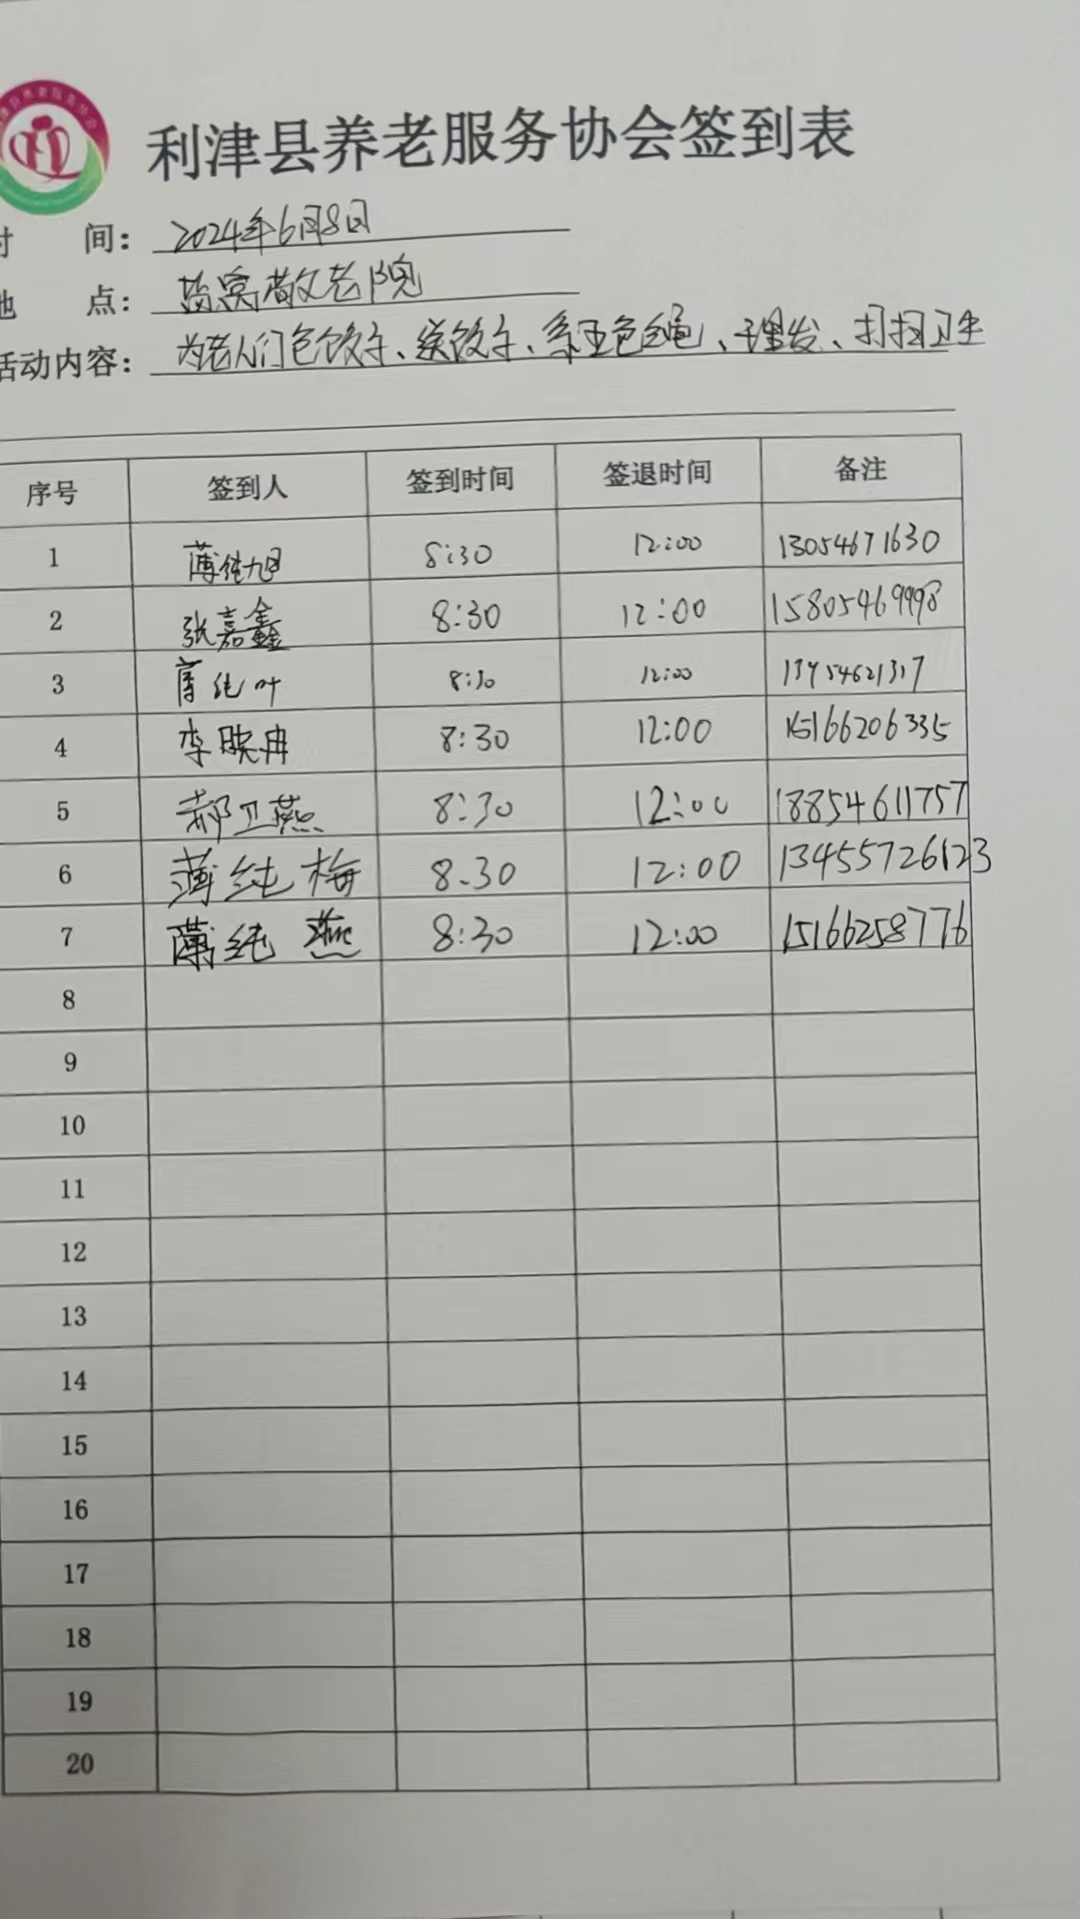 利津县养老服务协会签到表
时 间: 2024年6月8日
地 点: 盐窝敬老院
活动内容: 为老人们包饺子、送饺子、系五色绳、理发、打扫卫生
序号 签到人 签到时间 签退时间 备注
1 薄纯旭 8:30 12:00 13054671630
2 张嘉鑫 8:30 12:00 15805469998
3 薄纯叶 8:30 12:00
4 李映冉 8:30 12:00 15166206335
5 郝卫燕 8:30 12:00 18854611757
6 薄纯梅 8.30 12:00 13455726123
7 薄纯燕 8:30 12:00 15166258776
8
9
10
11
12
13
14
15
16
17
18
19
20